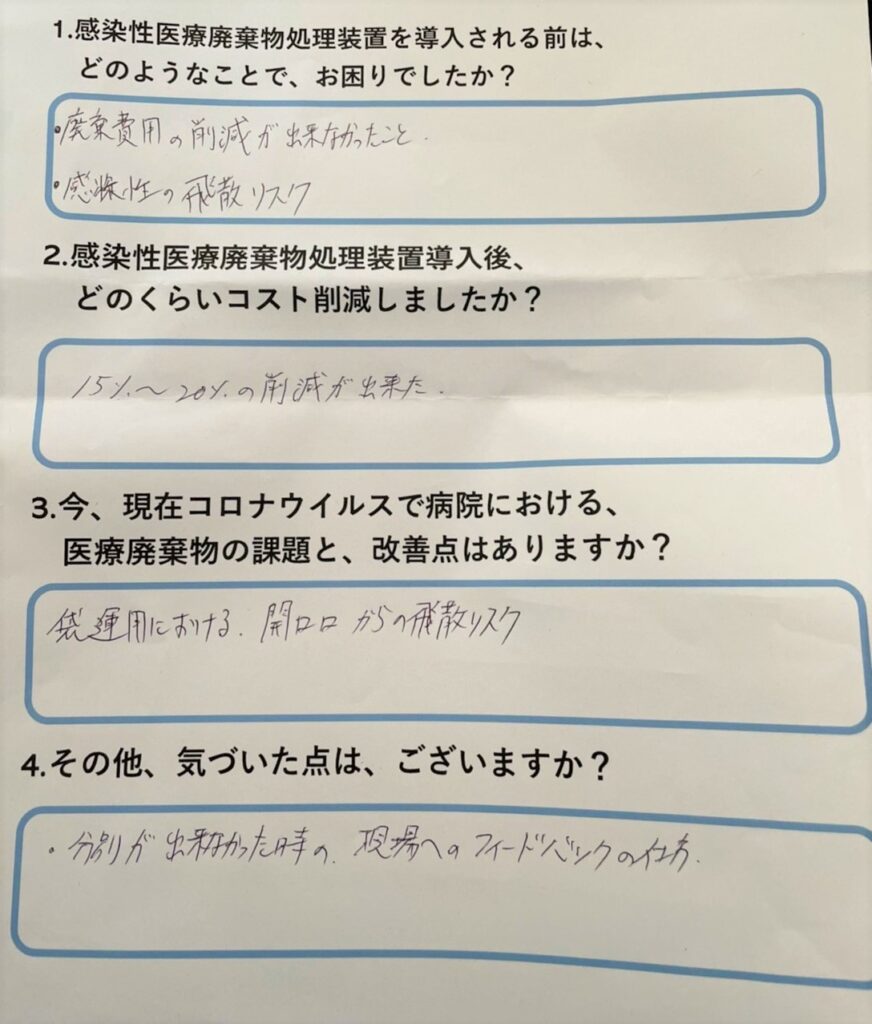 1.感染性医療廃棄物処理装置を導入される前は、
どのようなことで、お困りでしたか？
・廃棄費用の削減が出来なかったこと.
・感染性の飛散リスク
2.感染性医療廃棄物処理装置導入後、
どのくらいコスト削減しましたか？
15%〜20%の削減が出来た.
3.今、現在コロナウイルスで病院における、
医療廃棄物の課題と、改善点はありますか？
袋運用における.開口口からの飛散リスク
4.その他、気づいた点は、ございますか？
・分別が出来なかった時の.現場へのフィードバックの仕方.